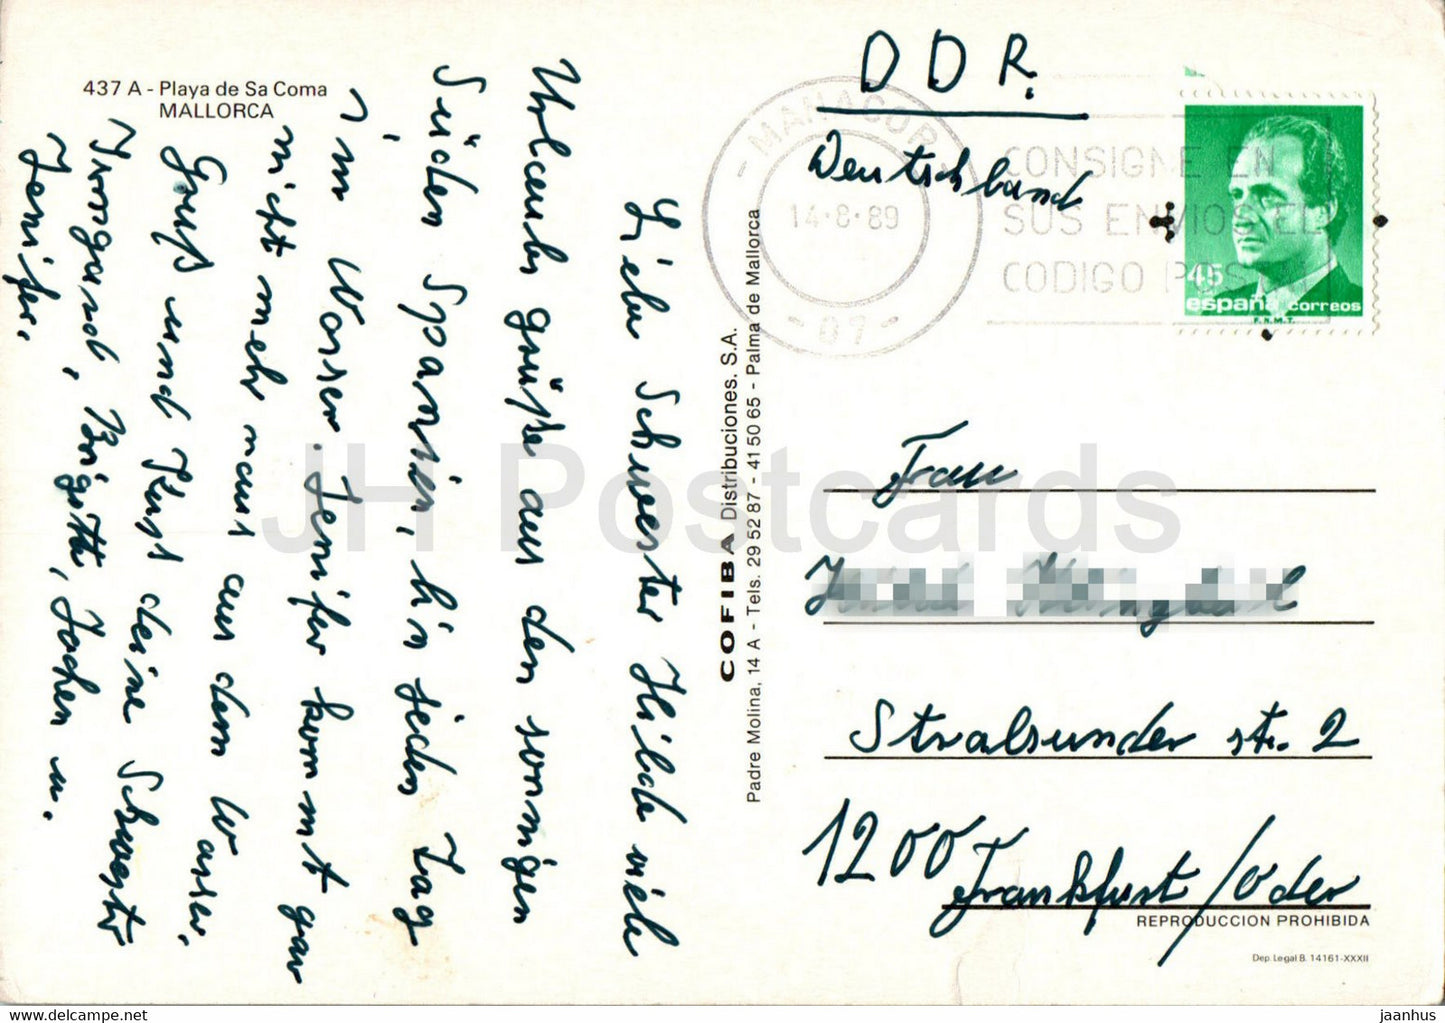 437 A - Playa de Sa Coma
MALLORCA
Liebe Schwester Hilde viele
Urlaubs grüße aus dem sonnigen
Süden Spanien, bin jeden Tag
im Wasser. Jenifer kommt gar
nicht mehr raus aus dem Wasser.
Gruß und Kuß deine Schwester
Irmgard, Brigitte, Jochen u.
Jenifer.
COFIBA Distribuciones. S.A.
Padre Molina, 14 A - Tels. 29 52 87 - 41 50 65 - Palma de Mallorca
DDR.
Deutschland
MANACOR
14-8-89
- 07 -
CONSIGNE EN
SUS ENVIOS EL
CODIGO POSTAL
45
españa correos
F.N.M.T.
Frau
Stralsunder str. 2
1200 Frankfurt/Oder
REPRODUCCION PROHIBIDA
Dep. Legal B. 14161-XXXII
JH Postcards
jaanhus © www.hippostcard.com